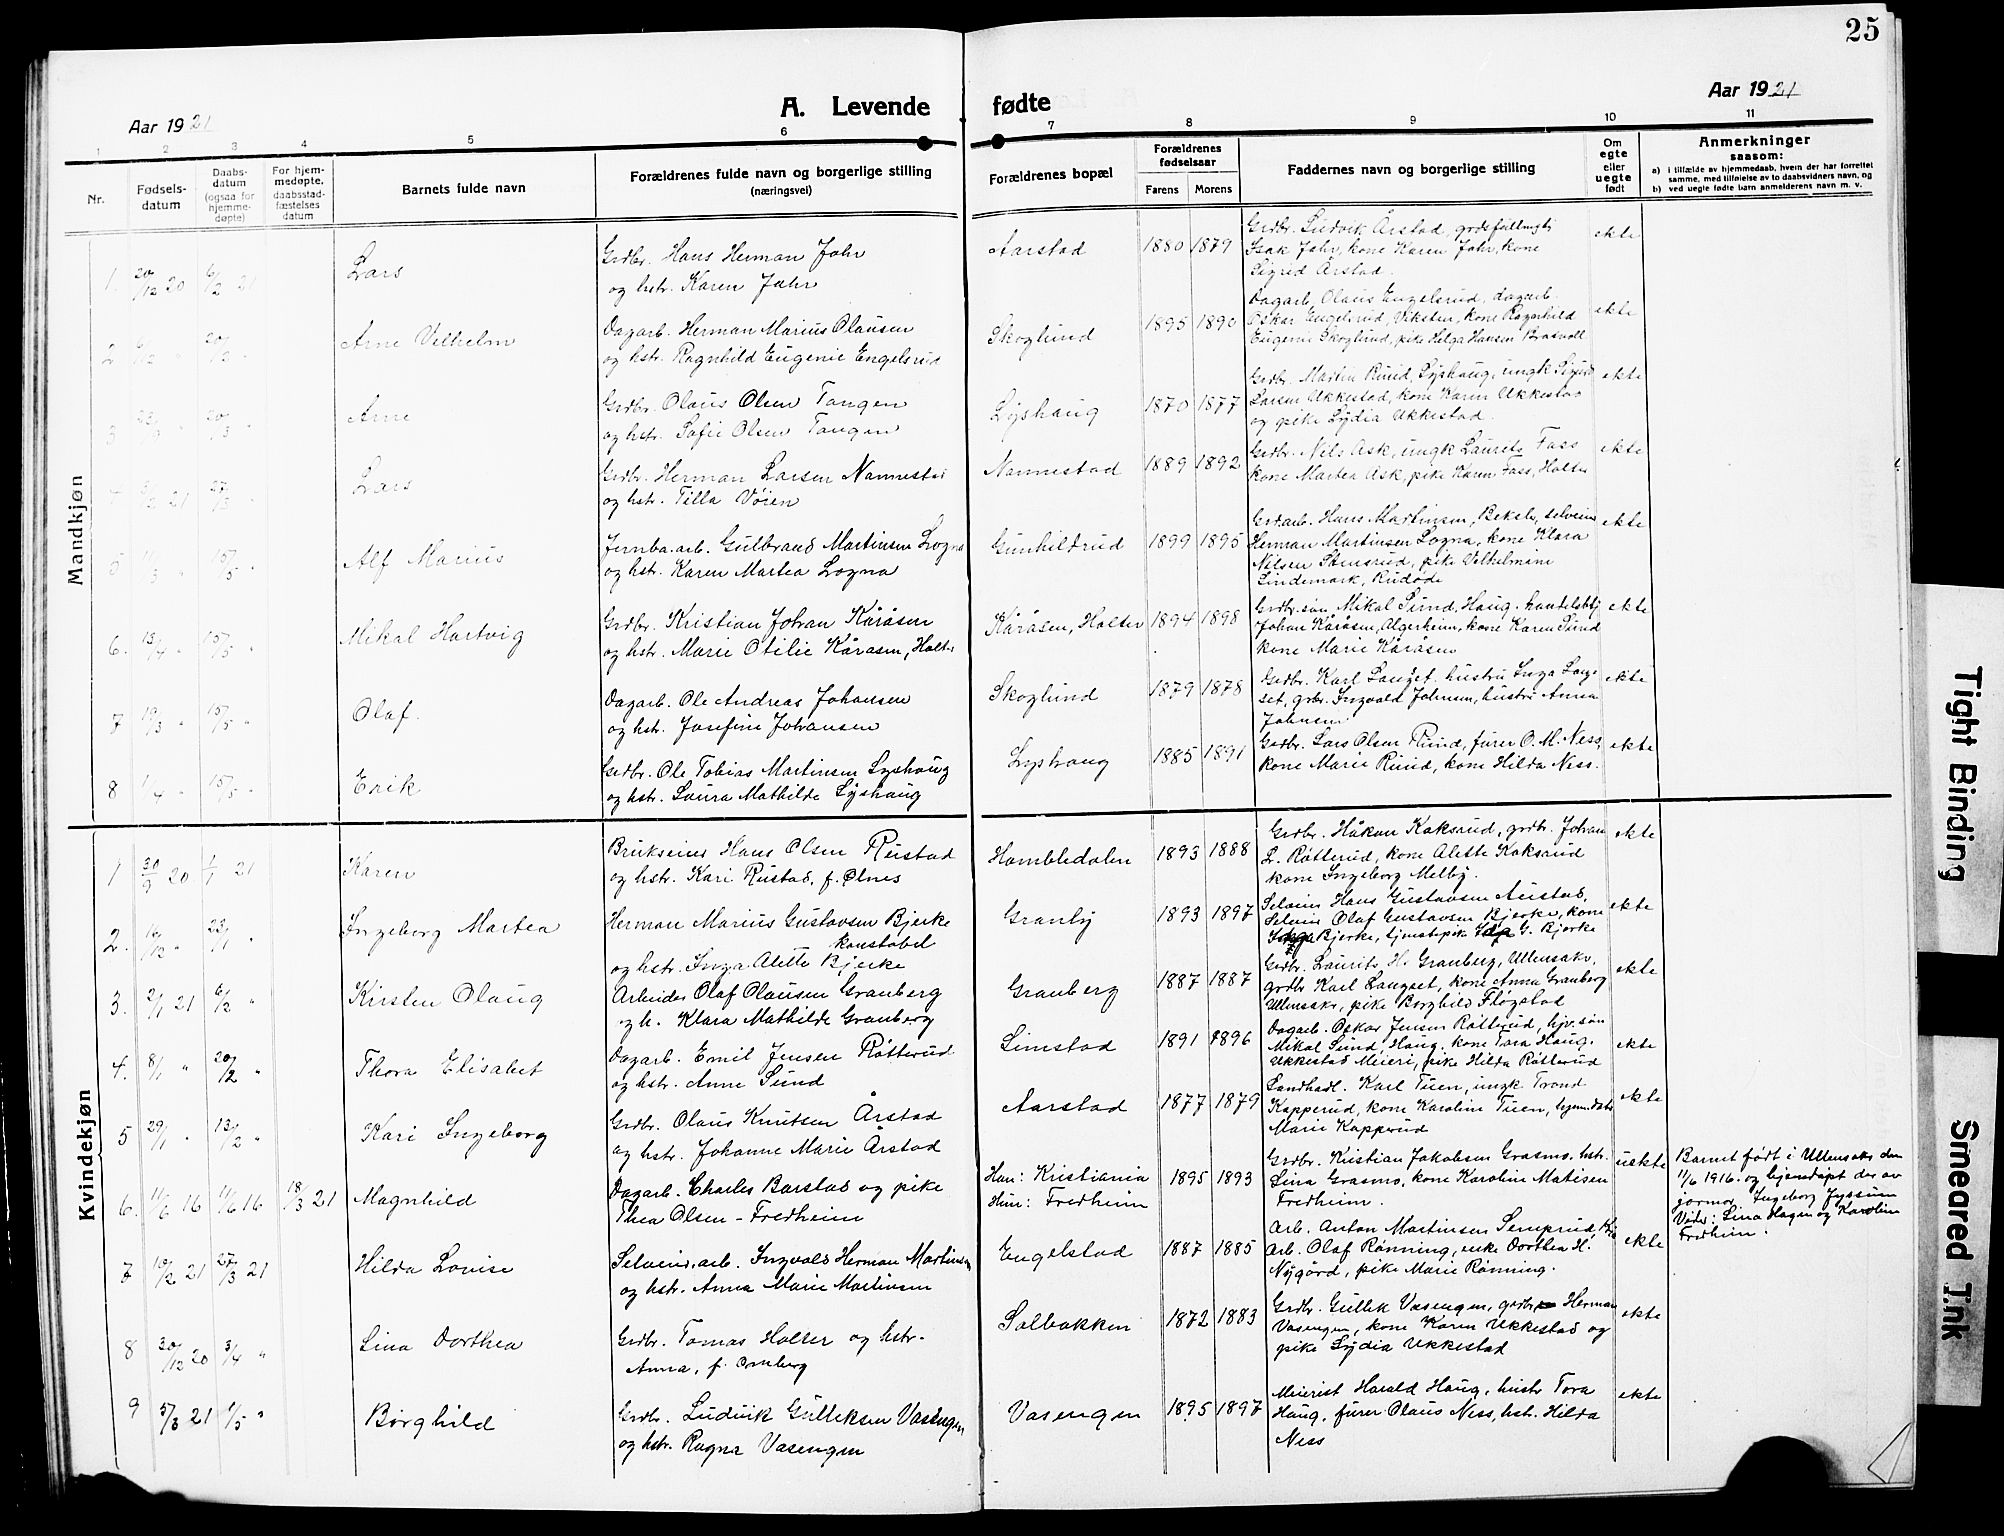 25
Aar 1921
A. Levende
fødte
Aar 1921
1 2 3 4 5 6 7 8 9 10 11
Nr.
Fødsels-
datum
Daabs-
datum
(ogsaa for
hjemme-
døpte)
For hjem-
medøpte,
daabsstad-
fæstelses
datum
Barnets fulde navn
Forældrenes fulde navn og borgerlige stilling
(næringsvei)
Forældrenes bopæl
Forældrenes
fødselsaar
Farens Morens
Faddernes navn og borgerlige stilling
Om
egte
eller
uegte
født
Anmerkninger
saasom:
a) i tilfælde av hjemmedaab, hvem der har forrettet
samme, med tilføielse av to daabsvidners navn, og
b) ved uegte fødte barn anmelderens navn m. v.
Mandkjøn
1. 20/12 20 6/2 21 Lars
Grdbr. Hans Herman Jahr
og hstr. Karen Jahr
Aarstad 1880 1879
Grdbr. Ludvik Årstad, grdsfullmgt
Isak Jahr, kone Karen Jahr, kone
Sigrid Årstad.
ekte
2 20/2 " Arne Vilhelm
Dagarb. Herman Marius Olausen
og hstr. Ragnhild Eugenie Engelsrud
Skoglund 1895 1890
Dagarb. Olaus Engelsrud, dagarb.
Oskar Engelsrud, Viksten, kone Ragnhild
Eugenie Skoglund, pike Helga Hansen
ekte
3 20/3 " Arne
Grdbr. Olaus Olsen Tangen
og hstr. Sofie Olsen Tangen
Lyshaug 1870 1877
Grdbr. Martin Ruud, Lyshaug, ungk Sigurd
Larsen Ukkestad, kone Karen Ukkestad
og pike Lydia Ukkestad.
ekte
4 21 27/3 " Lars
Grdbr. Herman Larsen Nannestad
og hstr. Tilla Vöien
Nannestad 1889 1892
Grdbr. Nils Ask, ungk Laurits Fass
kone Martea Ask, pike Karen Fass, Holter
ekte
5 " 15/5 " Alf Marius
Jernba.arb. Gulbrand Martinsen Logna
og hstr. Karen Martea Logna
Gunhildrud 1899 1895
Grd.arb. Hans Martinsen, selveier
Herman Martinsen Logna, kone Klara
Nilsen Stensrud, pike Vilhelmine
Lindemark,
ekte
6. 13/4 " 15/5 " Mikal Hartvig
Grdbr. Kristian Johan Kåråsen
og hstr. Marie Otilie Kåråsen, Holt.
Kåråsen, Holter 1894 1898
Grdbr.søn Mikal Sund, Haug, handelsbtj
Johan Kåråsen, Algerheim, kone Karen Sund
kone Marie Kåråsen
ekte
7 19/3 " 15/5 " Olaf.
Dagarb. Ole Andreas Johansen
og hstr. Josefine Johansen
Skoglund 1879 1878
Grdbr. Karl Langset, hustru Inga Lang-
set, grbr. Ingvald Johnsen, hustru Anna
Johnsen
ekte
8 1/4 " 15/5 " Erik
Grdbr. Ole Tobias Martinsen Lyshaug
og hstr. Laura Mathilde Lyshaug
Lyshaug 1885 1891
Grdbr. Lars Olsen Ruud, furer O. M. Ness,
kone Marie Ruud, kone Hilda Ness.
ekte
Kvindekjøn
1 30/9 20 1/1 21 Karen
Brukseier Hans Olsen Rustad
og hstr. Kari Rustad, f. Olnes
Hombledalen 1893 1888
Grdbr. Håkon Koksrud, grdbr. Johan
L. Råtterud, kone Alette Koksrud
kone Ingeborg Melby.
ekte
2. 16/12 " 23/1 " Ingeborg Martea
Herman Marius Gustavsen Bjerke
konstabel
og hstr. Inga Alette Bjerke
Granby 1893 1897
Selveier Hans Gustavsen Austad,
Selveier Olaf Gustavsen Bjerke, kone
Inga Bjerke, tjenestepike G. Bjerke
ekte
3. 2/1 21 6/2 " Kirsten Olaug
Arbeider Olaf Olausen Granberg
og h. Klara Mathilde Granberg
Granberg 1887 1887
Grdbr. Laurits H. Granberg, Ullensaker,
grdbr Karl Langset, kone Anna Granberg
Ullensaker, pike Borghild Fløgstad
ekte
4. 8/1 " 20/2 " Thora Elisabet
Dagarb. Emil Jensen Råtterud
og hstr. Anne Sund
Limstad 1891 1896
Dagarb. Oskar Jensen Råtterud, hjv. søn
Mikal Sund, Haug, kone Tora Haug,
Ukkestad Meieri, pike Hilda Råtterud
ekte
5 29/1 " 13/2 " Kari Ingeborg
Grdbr. Olaus Knutsen Årstad
og hstr. Johanne Marie Årstad
Aarstad 1877 1879
Landhadl. Karl Tuen, ungk. Trond
Kapperud, kone Karoline Tuen, hjem.datr
Marie Kapperud
ekte
6. 11/6 16 11/6 16 18/3 21 Magnhild
Dagarb. Charles Barstad og pike
Thea Olsen - Fredheim
Han: Kristiania
Hun: Fredheim
1895 1893
Grdbr. Kristian Jakobsen Grasmo, hstr.
Lina Grasmo, kone Karoline Matisen
Fredheim.
uekte
Barnet født i Ullensaker den
11/6 1916. og hjemdøpt der av
jormor Ingeborg Jyssum
Vidner: Lina Hagen og Karoline
Fredheim.
7 10/2 21 27/3 21 Hilda Lovise
Selveier.arb. Ingvald Herman Martinsen
og hstr. Anna Marie Martinsen
Engelstad 1887 1885
Arb. Anton Martinsen Semprud,
arb. Olaf Rønning, enke Dorthea H.
Nygård, pike Marie Rønning.
ekte
8 30/12 20 3/4 " Lina Dorthea
Grdbr. Tomas Holter og hstr.
Anna, f. Ornberg
Solbakken 1872 1883
Grdbr. Gullik Vasengen, grdbr. Herman
Vasengen, kone Karen Ukkestad og
pike Lydia Ukkestad
ekte
9 5/3 21 1/5 " Borghild
Grdbr. Ludvik Gulliksen Vasengen
og hstr. Ragna Vasengen
Vasengen 1895 1897
Meierist Harald Haug, hustr Tora
Haug, furer Olaus Ness, hstr. Hilda
Ness
ekte
Tight Binding
Smeared Ink